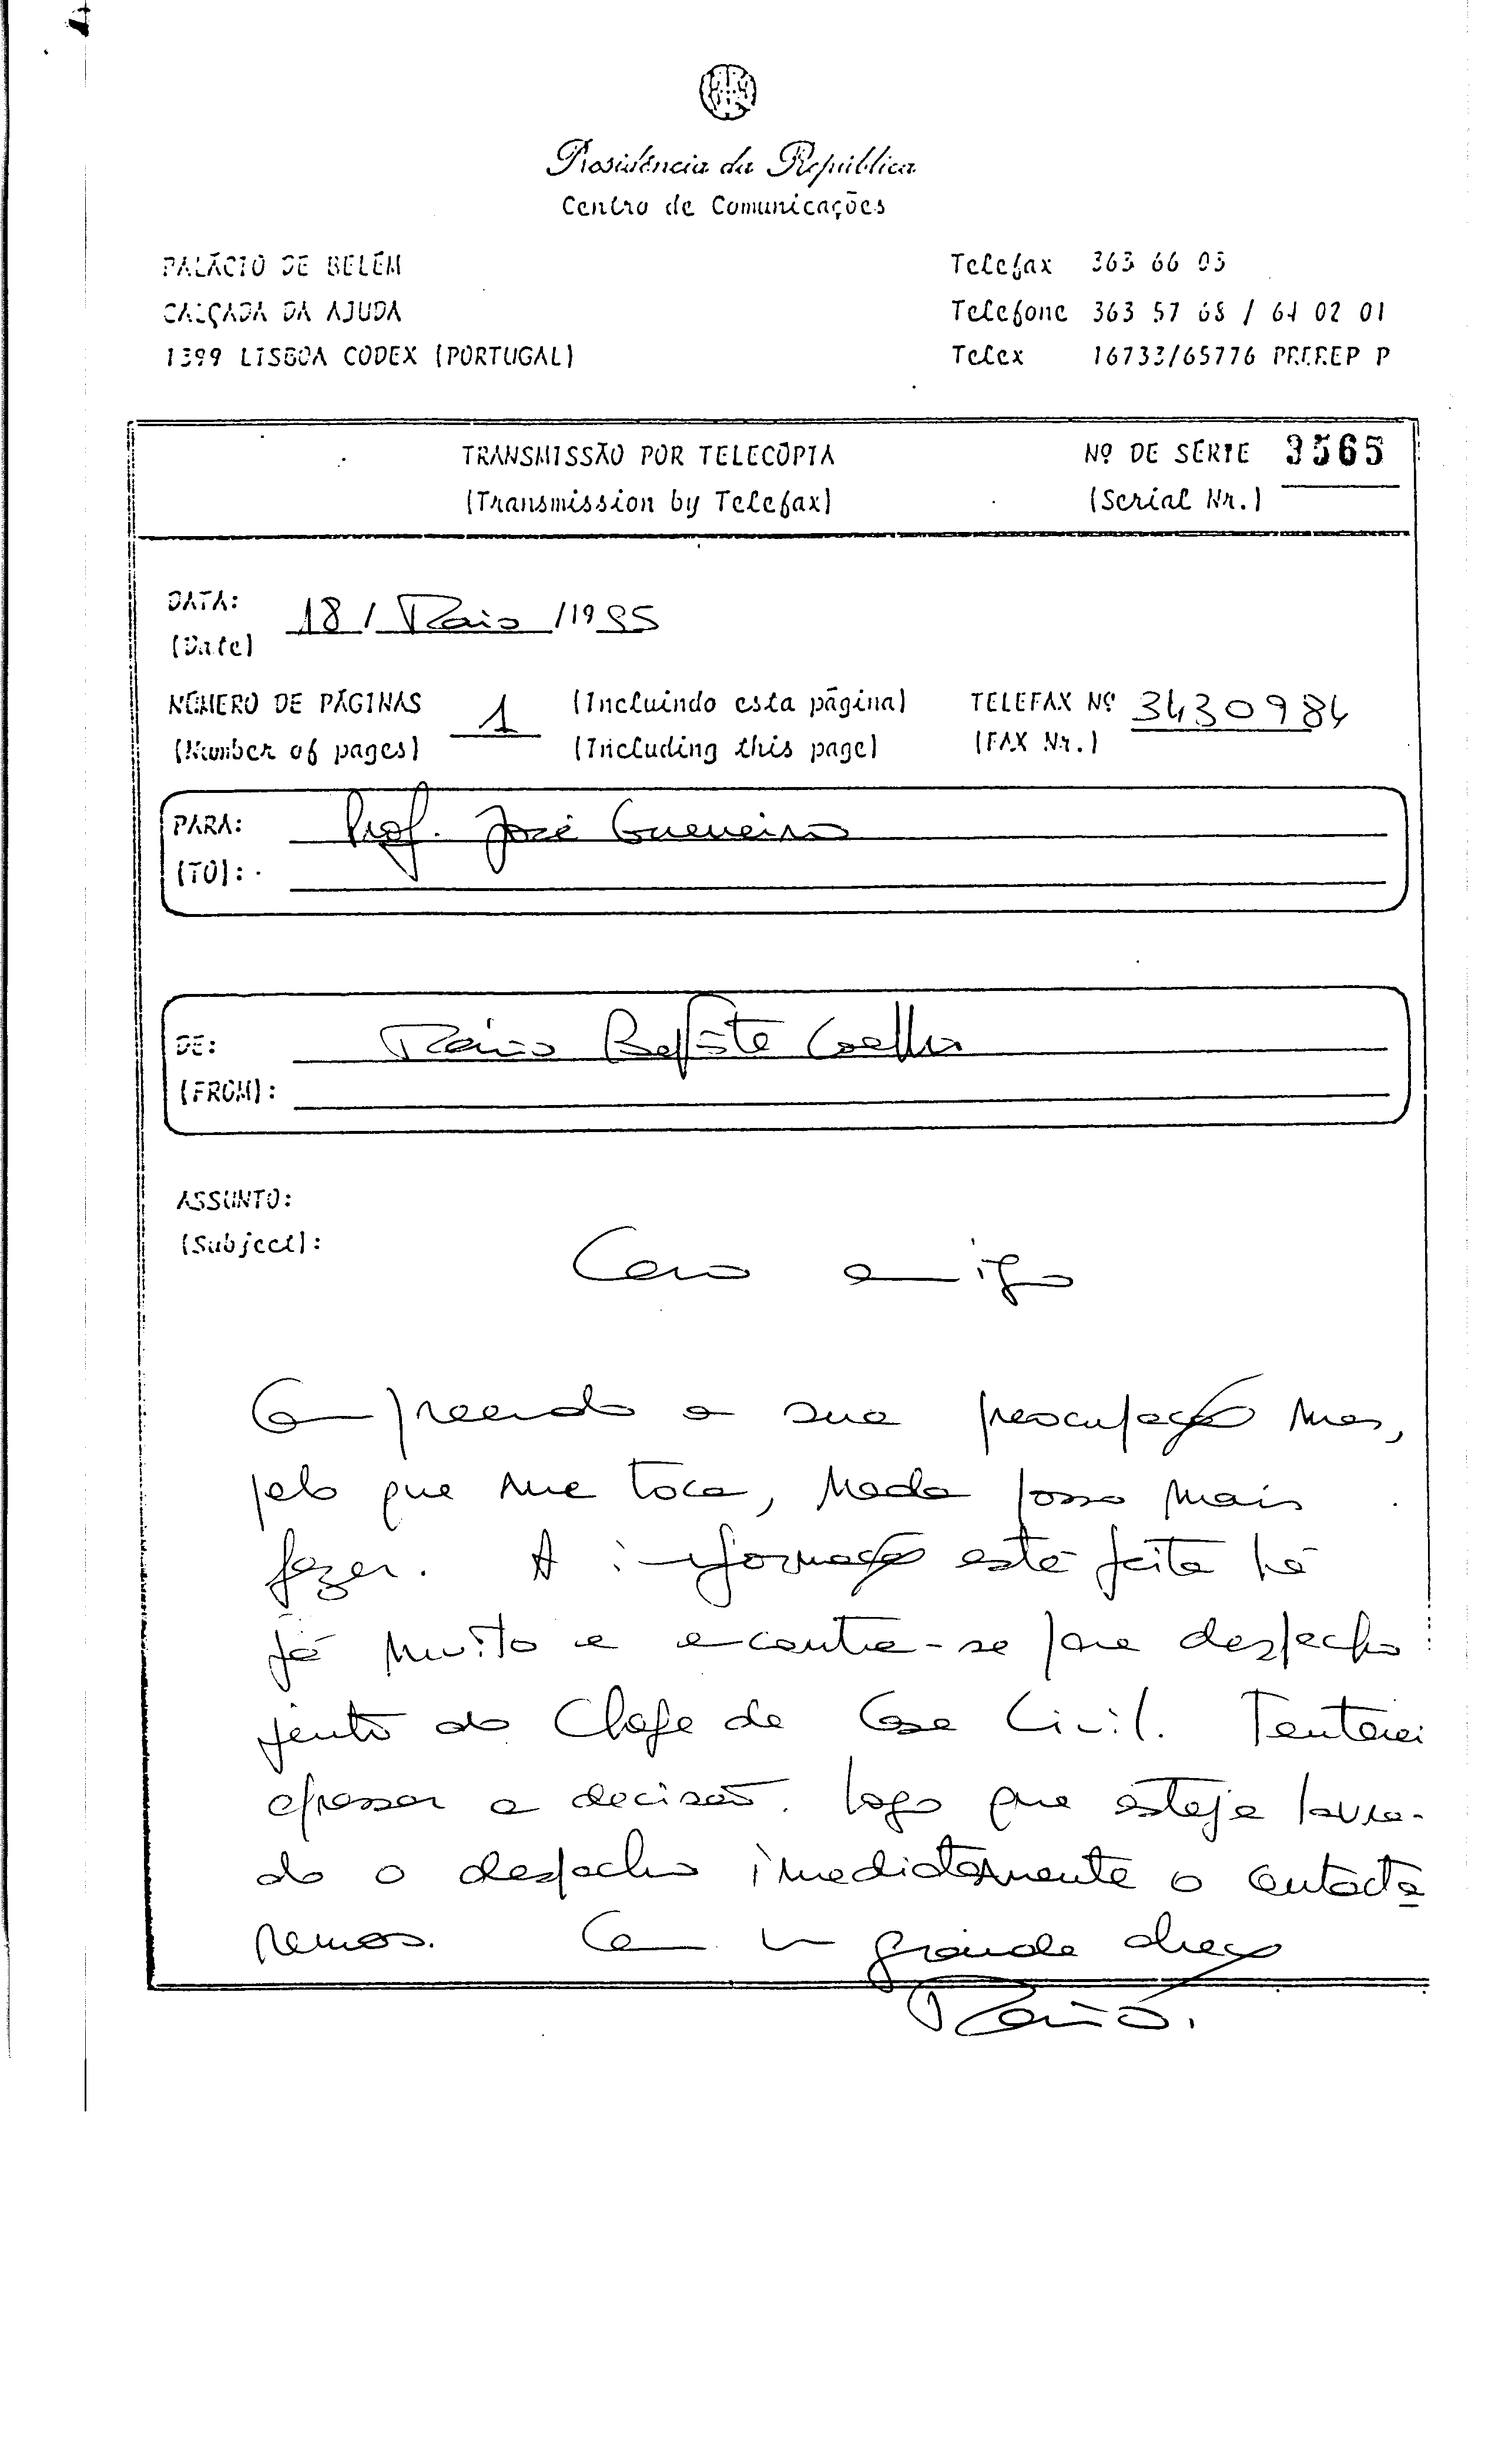 Presidência da República
Centro de Comunicações
PALÁCIO DE BELÉM
CALÇADA DA AJUDA
1399 LISBOA CODEX (PORTUGAL)
Telefax 363 66 03
Telefone 363 57 68 / 64 02 01
Telex 16733/65776 PREREP P
TRANSMISSÃO POR TELECÓPIA
(Transmission by Telefax)
Nº DE SÉRIE 3565
(Serial Nr.)
DATA: 18 / Maio / 1995
(Date)
NÚMERO DE PÁGINAS 1 (Incluindo esta página) TELEFAX Nº 3430984
(Number of pages) (Including this page) (FAX Nr.)
PARA: Prof. José Guerreiro
(TO):
DE: Mário Baptista Coelho
(FROM):
ASSUNTO:
(Subject):
Caro amigo
Compreendo a sua preocupação mas,
pelo que me toca, nada posso mais
fazer. A informação está feita há
já muito e encontra-se para despacho
junto do Chefe da Casa Civil. Tentarei
apressar a decisão. Logo que esteja lavra-
do o despacho imediatamente o contacta
remos. Com um grande abraço
Mário.